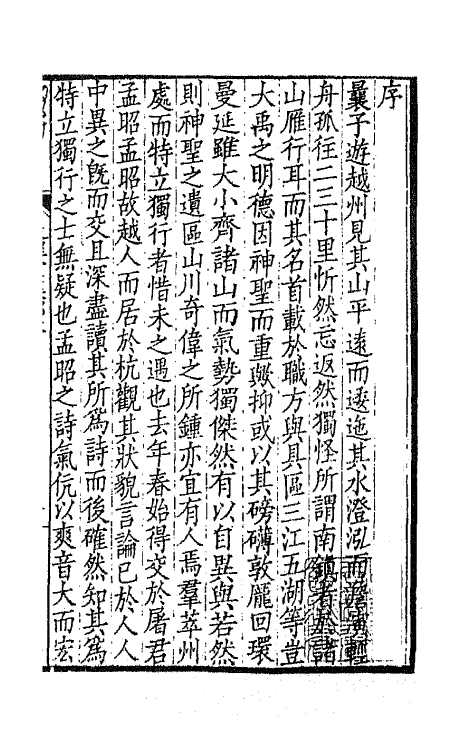 序
曩子遊越州見其山平遠而逶迤其水澄泓而澹演輕
舟孤往二三十里忻然忘返然獨怪所謂南鎮者於諸
山雁行耳而其名首載於職方與具區三江五湖等豈
大禹之明德因神聖而重歟抑或以其磅礴敦龐回環
曼延雖大小齊諸山而氣勢獨傑然有以自異與若然
則神聖之遺區山川奇偉之所鍾亦宜有人焉羣萃州
處而特立獨行者惜未之遇也去年春始得交於屠君
孟昭孟昭故越人而居於杭觀其狀貌言論已於人人
中異之旣而交且深盡讀其所爲詩而後確然知其爲
特立獨行之士無疑也孟昭之詩氣伉以爽音大而宏